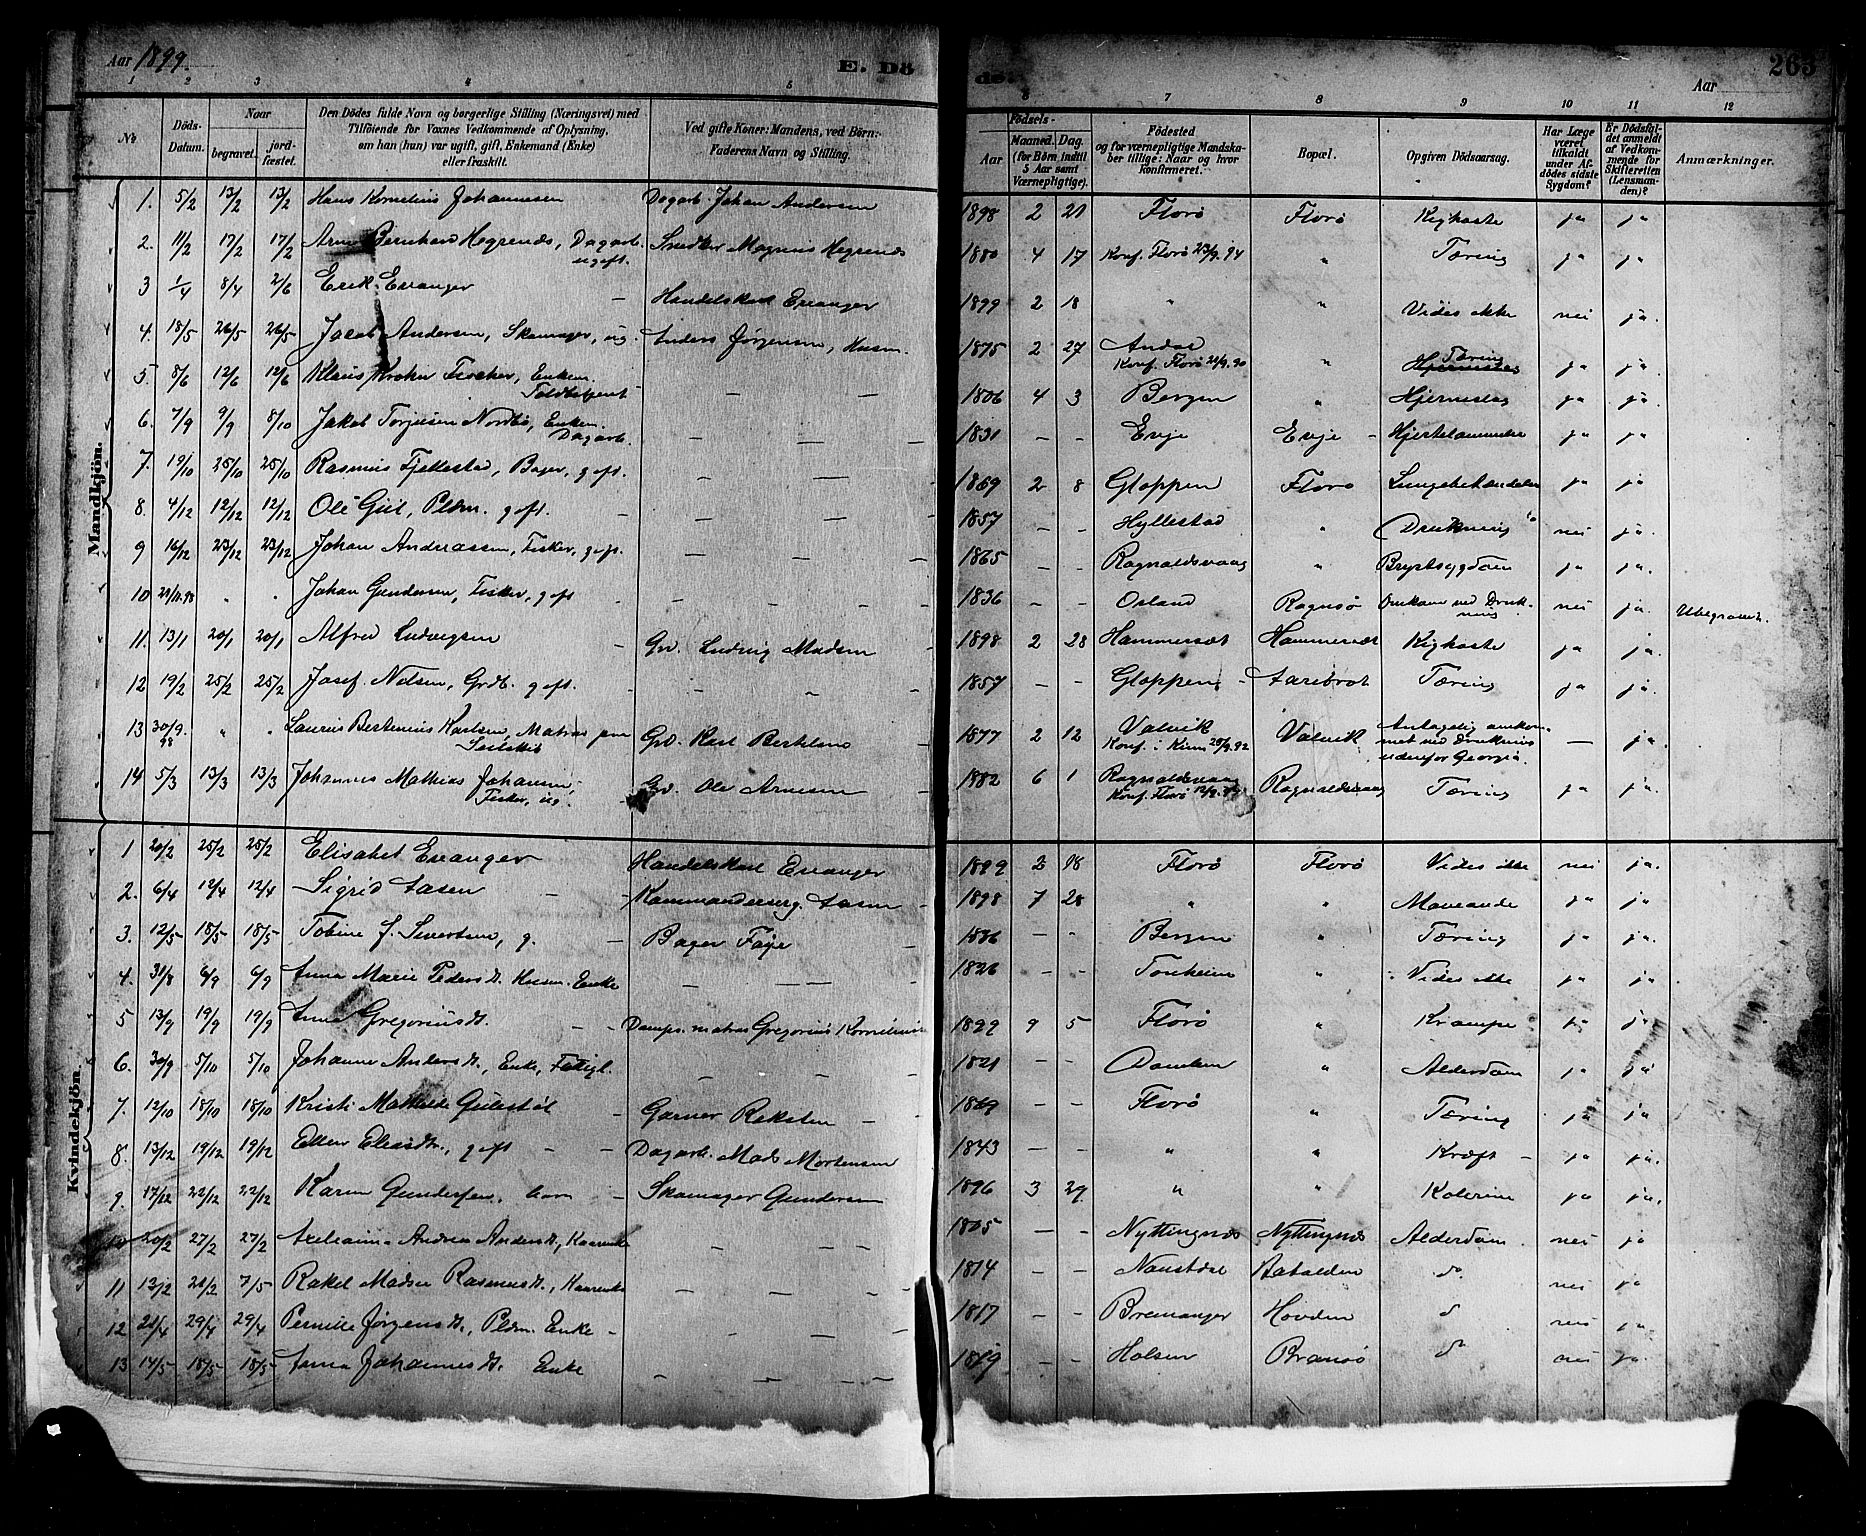 Aar 1899. E. Dö
de. Aar 263
1 2 3 4 5
6 7 8 9 10 11 12
No Döds-Datum. Naar begravet. jordfæstet. Den Dödes fulde Navn og borgerlige Stilling (Næringsvei) med Tilföiende for Voxnes Vedkommende af Oplysning, om han (hun) var ugift, gift, Enkemand (Enke) eller fraskilt. Ved gifte Koner: Mandens, ved Börn: Faderens Navn og Stilling.
Födsels- Aar Maaned. Dag. (for Börn indtil 5 Aar samt Værnepligtige). Födested og for værnepligtige Mandskaber tillige: Naar og hvor konfirmeret. Bopæl. Opgiven Dödsaarsag. Har Læge været tilkaldt under Afdödes sidste Sygdom? Er Dödsfaldet anmeldt af Vedkommende for Skifteretten (Lensmanden)? Anmærkninger.
Mandkjön.
1. 5/2 13/2 13/2 Hans Kornelius Johannesen Dagarb. Johan Andersen 1898 2 21 Florö Florö Kighoste ja ja
2. 11/2 17/2 17/2 Arne Bernhard Hegrenæs, Dagarb. ugift. Snedker Magnus Hegrenæs 1880 4 17 Konf. Florö 23/9 94 " Tæring ja ja
3 1/4 8/4 2/6 Erik Esvanger - Handelskarl Esvanger 1899 2 18 " " Vides ikke nei ja.
4. 18/5 26/5 26/5 Jacob Andersen, Skomager, ug. Anders Jørgensen, Husm. 1875 2 27 Konf. Florö 21/9 90 " Tæring ja ja.
5. 8/6 12/6 12/6 Klaus Krohn Fischer, Enkem. Toldbetjent - - 1806 4 3 Bergen " Hjerneslag ja ja
6. 7/9 9/9 8/10 Jakob Torjusen Nordbö, Enkem. Dagarb. - - 1831 - - Evje Evje - Hjertelammelse ja ja
7. 19/10 25/10 25/10 Rasmus Fjellestad, Bager, gift. - - 1869 2 8 Gloppen Florö Lungebetændelse ja ja
8. 4/12 12/12 12/12 Ole Giil, Pldm. gift. - - 1857 - - Hyllestad " Drukning nei ja.
9 16/12 23/12 23/12 Johan Andreassen, Fisker, gift. - - 1865 - - Rognaldsvaag " Brystsygdom ja ja.
10 " " Johan Gundersen, Fisker, gift - - 1836 - - Rognsö Omkom ved Drukning nei ja. Ubegravet.
11. 13/1 20/1 20/1 Alfred Ludvigsen Grd. Ludvig Madsen 1898 2 28 Hammerset Hammerset Kighoste ja ja.
12 19/2 25/2 25/2 Josef Nilsen, Grdb. gift. - " - 1857 - - Gloppen - Aarebrot Tæring ja ja.
13 30/9. 98 " " Laurits Bertinius Karlsen, Matros paa Seilskib Grd. Karl Bertelsen - 1877 2 12 Valvik Konf. i Kinn 25/9.92 Valvik Antagelig omkommet ved Drukning udenfor Georgia. - ja.
14 5/3 13/3 13/3 Johannes Mathias Johansen, Fisker, ug. Grd. Ole Arnesen - 1882 6 1 Rognaldsvaag Konf. Florö Rognaldsvaag Tæring ja ja.
Kvindekjön.
1 20/2 25/2 25/2 Elisabet Esvanger Handelskarl Esvanger 1899 2 18 Florö Florö Vides ikke nei ja.
2. 6/4 12/4 12/4 Sigrid Aasen - - Kommandersrg. Aasen - 1898 7 28 " " Maveonde ja ja
3. 12/5 18/5 18/5 Tobine f. Sivertsen, g. - Bager Faye - 1836 - - Bergen " Tæring ja ja.
4. 31/8 6/9 6/9 Anna Marie Pedersdt. Husm. Enke - - - 1826 - - Tonheim " Vides ikke ja ja
5 13/9 19/9 19/9 Anna Gregoriusdt. - - Damps. matros Gregorius Kornelius 1899 9 5 Florö " Krampe ja ja
6. 30/9 5/10 5/10 Johanne Andersdt., Enke, Fattigl. - - 1821 - - " Alderdom ja ja
7. 12/10 18/10 18/10 Kristi Mathilde Gulestöl - Garver Reksten - 1869 - - Florö " Tæring ja ja.
8. 13/12 19/12 19/12 Ellen Eliasdt., gift - - Dagarb. Mads Mortensen 1843 - - " " Kræft - ja ja.
9. 17/12 22/12 22/12 Karen Gundersen, barn - Skomager Gundersen 1896 3 29 " " Kolerine ja ja.
10 20/2 27/2 27/2 Andrea Andersdt., Kaarenke - - - 1805 - - Nyttingnæs Nyttingnæs Alderdom. nei ja
11 2/2 7/5 Rakel Madsea Rasmusdt., Kaarenke - - - 1814 - - Naustdal Batalden do nei ja
12 21/4 29/4 29/4 Pernille Jørgensdt., Pldm. Enke - - - - 1817 - - Bremanger Hovden do nei ja.
13 14/5 18/5 18/5 Anna Johannesdt. Enke - - - 1819 - - Holsen Bransö do nei ja.